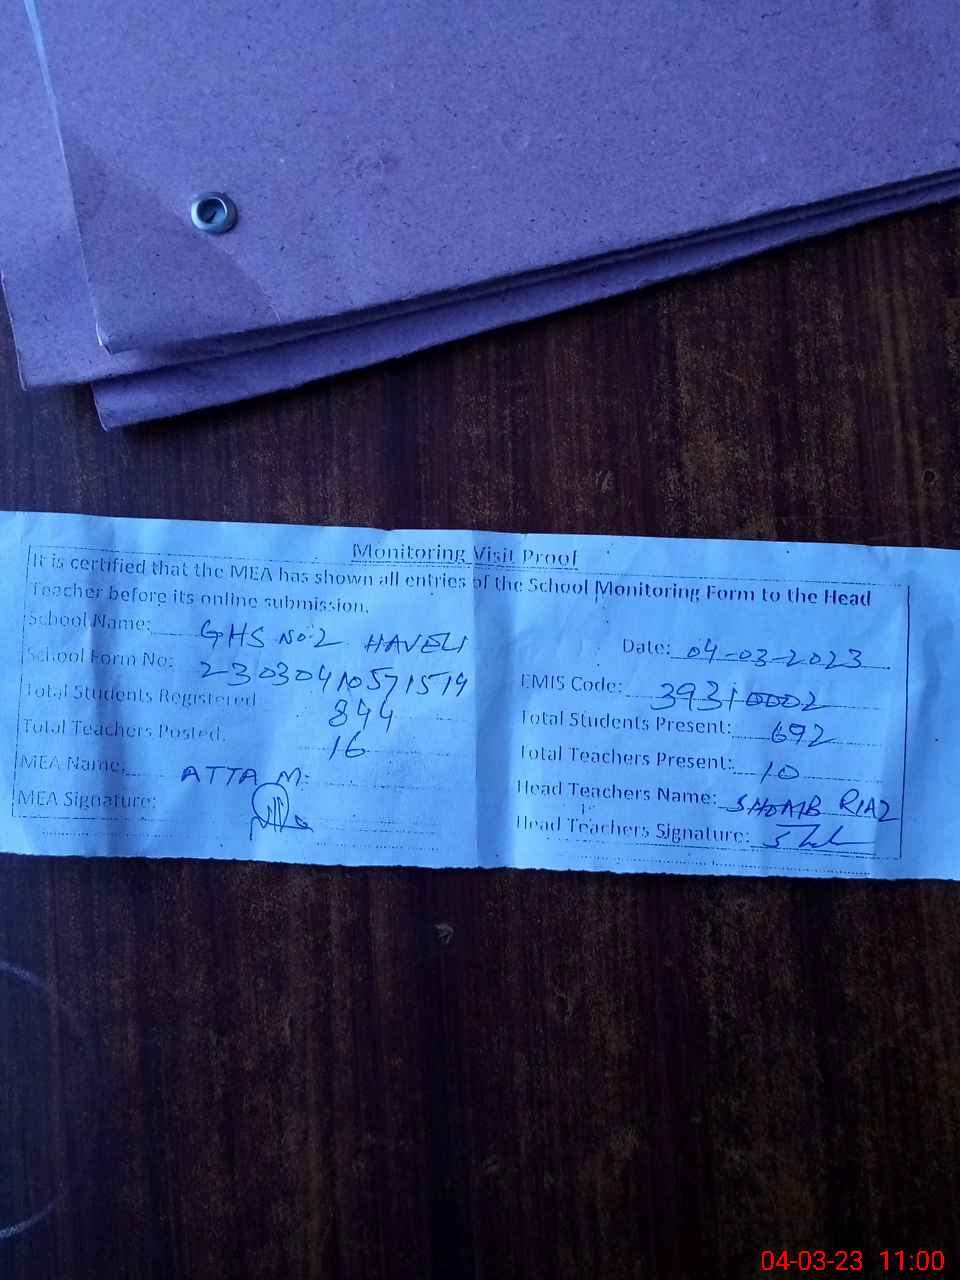 Monitoring Visit Proof
It is certified that the MEA has shown all entries of the School Monitoring Form to the Head
Teacher before its online submission.
School Name: GHS No: 2 HAVELI
Date: 04-03-2023
School Form No: 23030410571514
EMIS Code: 39310002
Total Students Registered 844
Total Students Present: 692
Total Teachers Posted: 16
Total Teachers Present: 10
MEA Name: ATTA M:
Head Teachers Name: SHOAIB RIAZ
MEA Signature:
Head Teachers Signature:
04-03-23 11:00